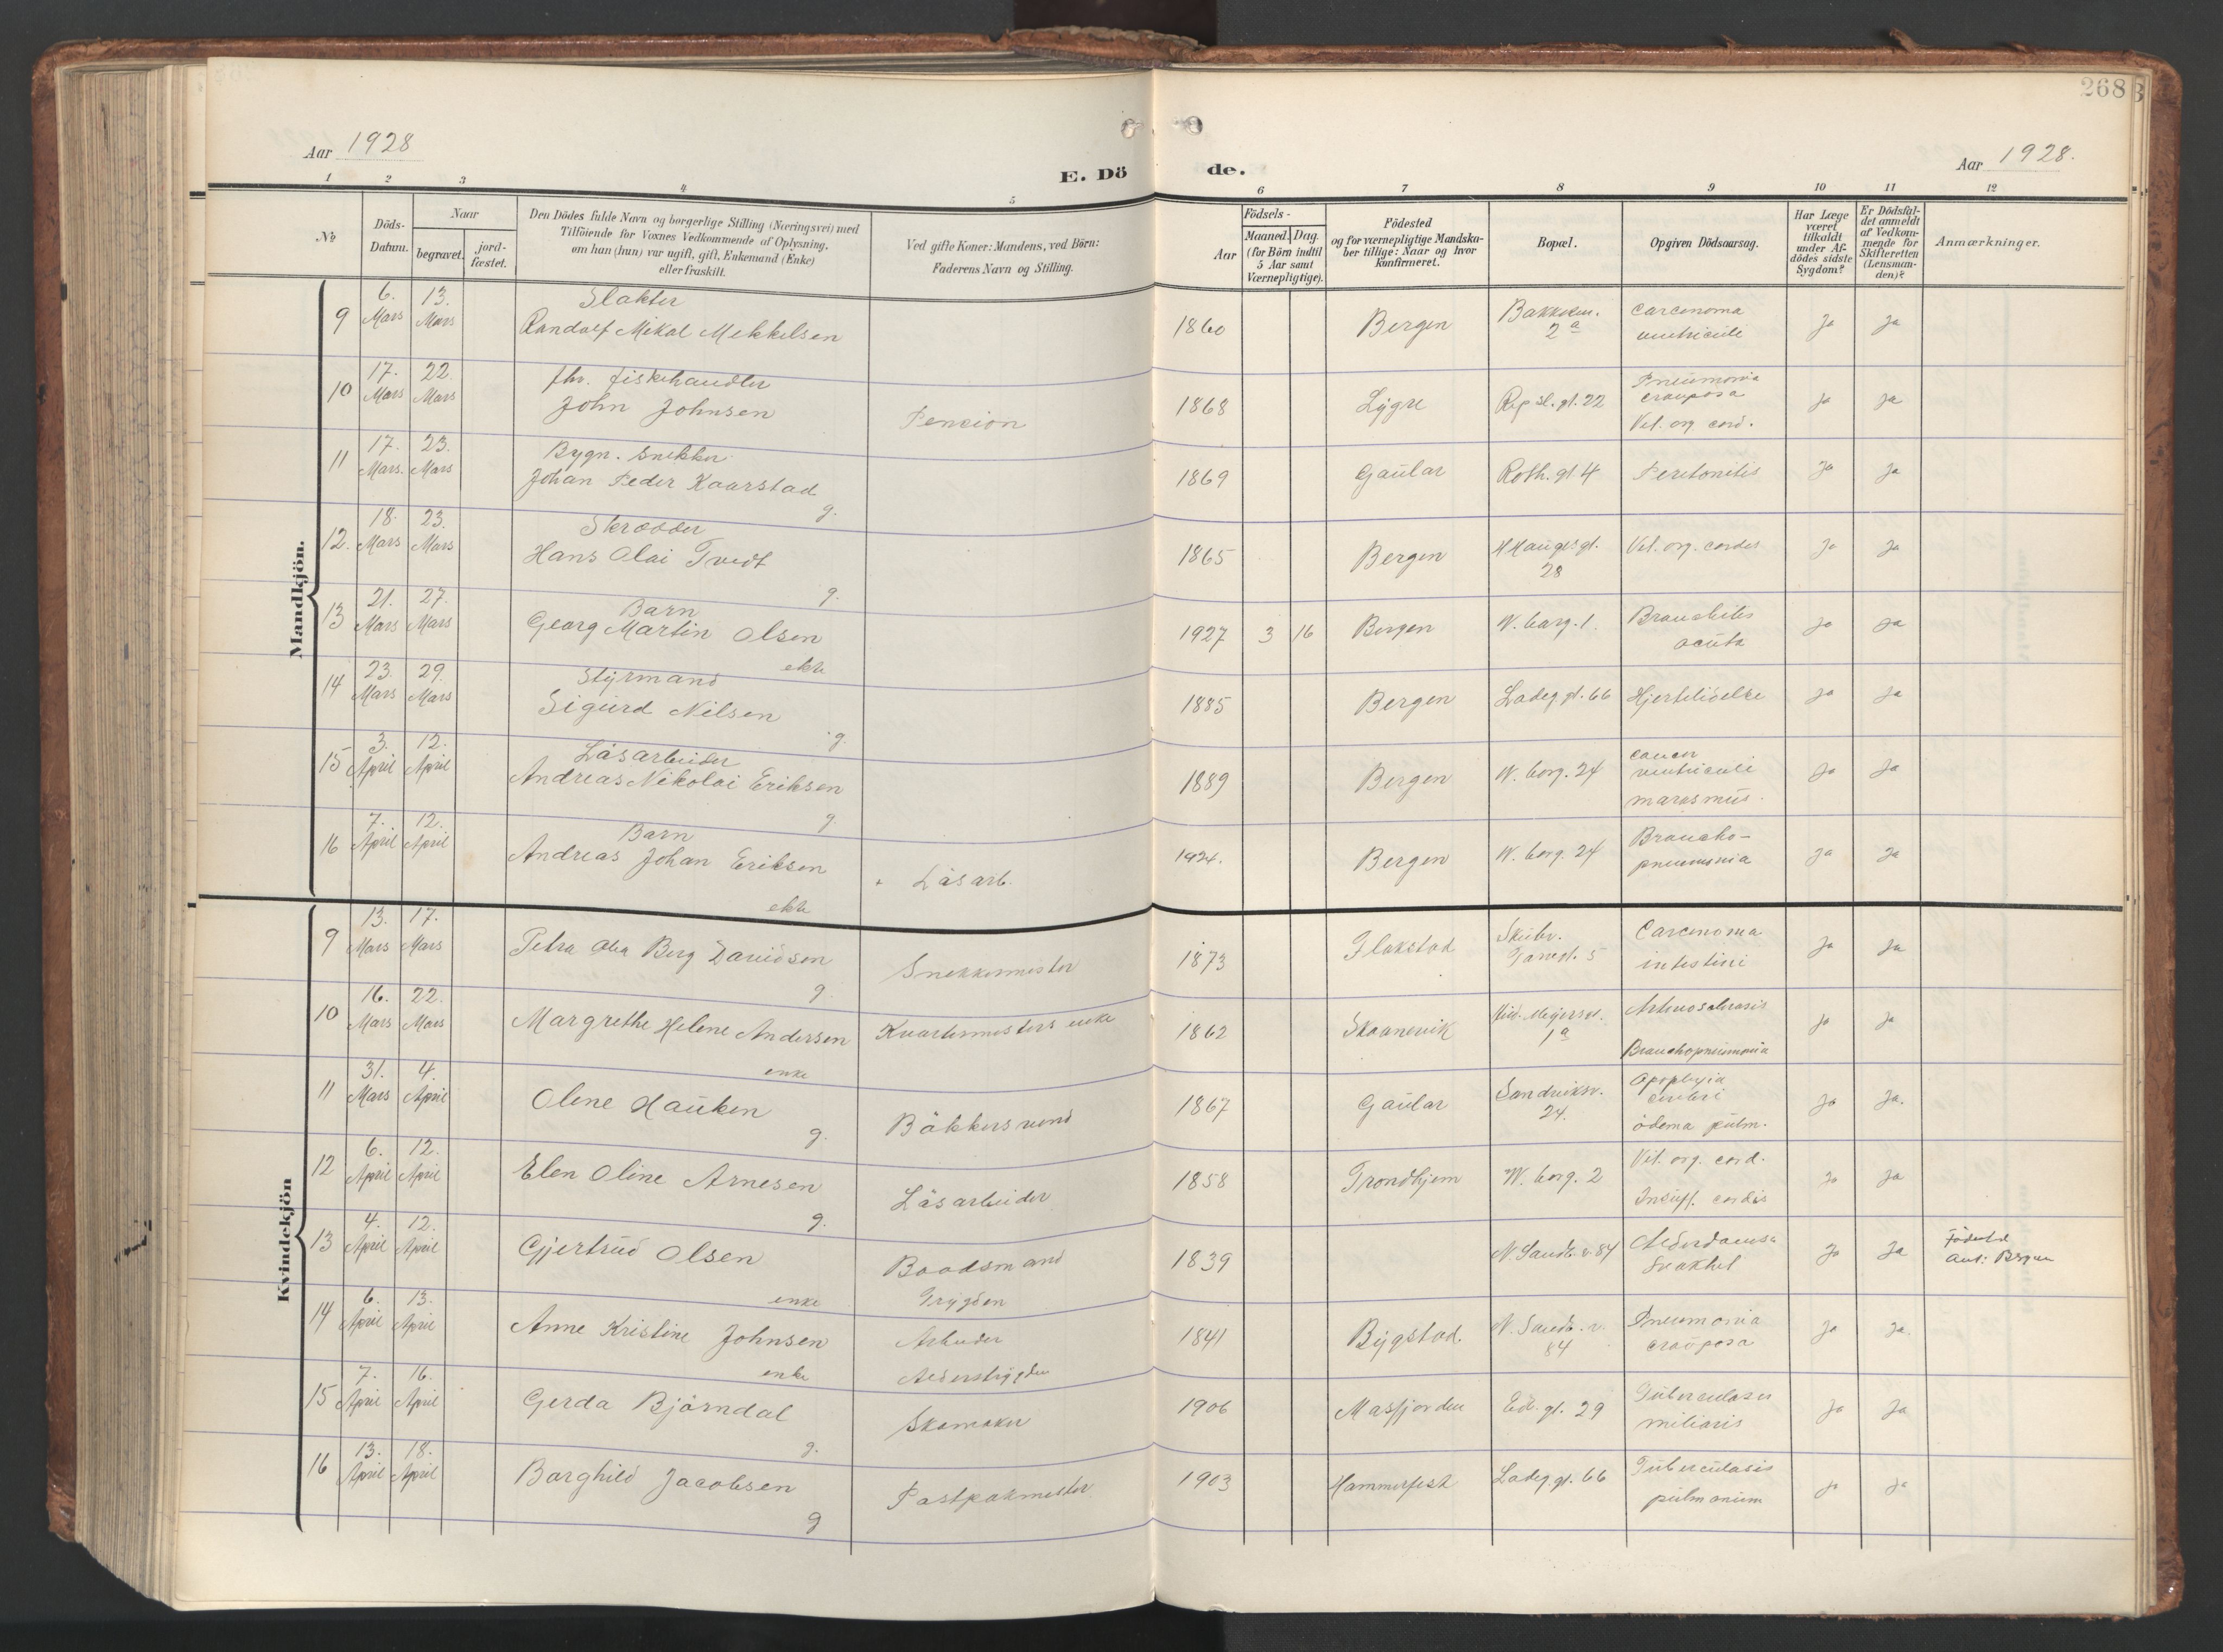 268
Aar 1928
Aar 1928.
E. Dö
de.
1 2 3 4 5 6 7 8 9 10 11 12
№
Döds-
Datum.
Naar
begravet.
jord-
fæstet.
Den Dödes fulde Navn og borgerlige Stilling (Næringsvei) med
Tilföiende for Voxnes Vedkommende af Oplysning,
om han (hun) var ugift, gift, Enkemand (Enke)
eller fraskilt.
Ved gifte Koner: Mandens, ved Börn:
Faderens Navn og Stilling.
Födsels-
Aar
Maaned. Dag.
(for Börn indtil
5 Aar samt
Værnepligtige).
Födested
og for værnepligtige Mandska-
ber tillige: Naar og hvor
konfirmeret.
Bopæl.
Opgiven Dödsaarsag.
Har Læge
været
tilkaldt
under Af-
dödes sidste
Sygdom?
Er Dödsfal-
det anmeldt
af Vedkom-
mende for
Skifteretten
(Lensman-
den)?
Anmærkninger.
Mandkjön.
9 6. Mars 13. Mars Slakter
Randolf Mikal Mekkelsen 1860 Bergen 2a Carcenoma
ventriculi Ja Ja
10 17. Mars 22. Mars fhv. fiskehandler
John Johnsen Pencion 1868 Lygre Rep sl. gt. 22 Pneumonia
crouposa
Vit. org cord. Ja Ja
11 17. Mars. 23. Mars Bygn. Snekker
Johan Peder Kaarstad
g. 1869 Gaular Roth. gt 4 Peretonitis Ja Ja
12. 18. Mars 23. Mars Skrædder
Hans Olai Tvedt
g. 1865 Bergen H Hauges gt.
28 Vit. org. cordis Ja Ja
13 21. Mars 27. Mars Barn
Georg Martin Olsen
ekte 1927 3 16 Bergen N. borg. 1. Bronchitis
acuta Ja Ja
14 23. Mars 29. Mars Styrmand
Sigurd Nilsen
g. 1885 Bergen Ladeg. gt. 66 Hjertelidelse Ja Ja
15 3. April 12. April Låsarbeider
Andreas Nikolai Eriksen
g. 1889 Bergen N. borg. 24 cancer
ventriculi
marasmus. Ja Ja
16 7. April 12. April Barn
Andreas Johan Eriksen
ekte Låsarb. 1924. Bergen N. borg. 24 Broncho-
pneumonia Ja Ja
Kvindekjön
9 13. Mars 17. Mars Petra Olea Berg Davidsen
g. Snekkermester 1873 Flakstad 5 Carcenoma
intestini Ja Ja
10 16. Mars 22. Mars Margrethe Helene Andersen
enke Kvartermesters enke 1862 Skaanevik 1a Arteriosclerosis
Bronchopneumonia Ja Ja
11 31. Mars 4. April Olene Hauken
g. Båkkersvend 1867 Gaular Sandviksv.
24. Apoplexia
cerebri
ödema pulm. Ja Ja.
12 6. April 12. April Elen Oline Arnesen
g. Låsarbeider 1858 Trondhjem N. borg. 2 Vit. org. cord.
Insuff. cordis Ja Ja
13 4. April 12. April Gjertrud Olsen
enke Baadsmand
Trygden 1839 N. Sandv. v. 84 Alderdoms
Svakhet Ja Ja Födested
ant: Bergen
14 6. April 13. April Anne Kristine Johnsen
enke Arbeider
Alderstrygden 1841 Bygstad. N. Sandv. v.
84 Pneumonia
crouposa Ja Ja.
15 7. April 16. April Gerda Björndal
g. Skomaker 1906 Masfjorden Ed. gt. 29 Tuberculosis
miliaris Ja Ja
16 13. April 18. April Borghild Jacobsen
g Postpakmester 1903 Hammerfest Ladeg. gt. 66 Tuberculosis
pulmonum Ja Ja